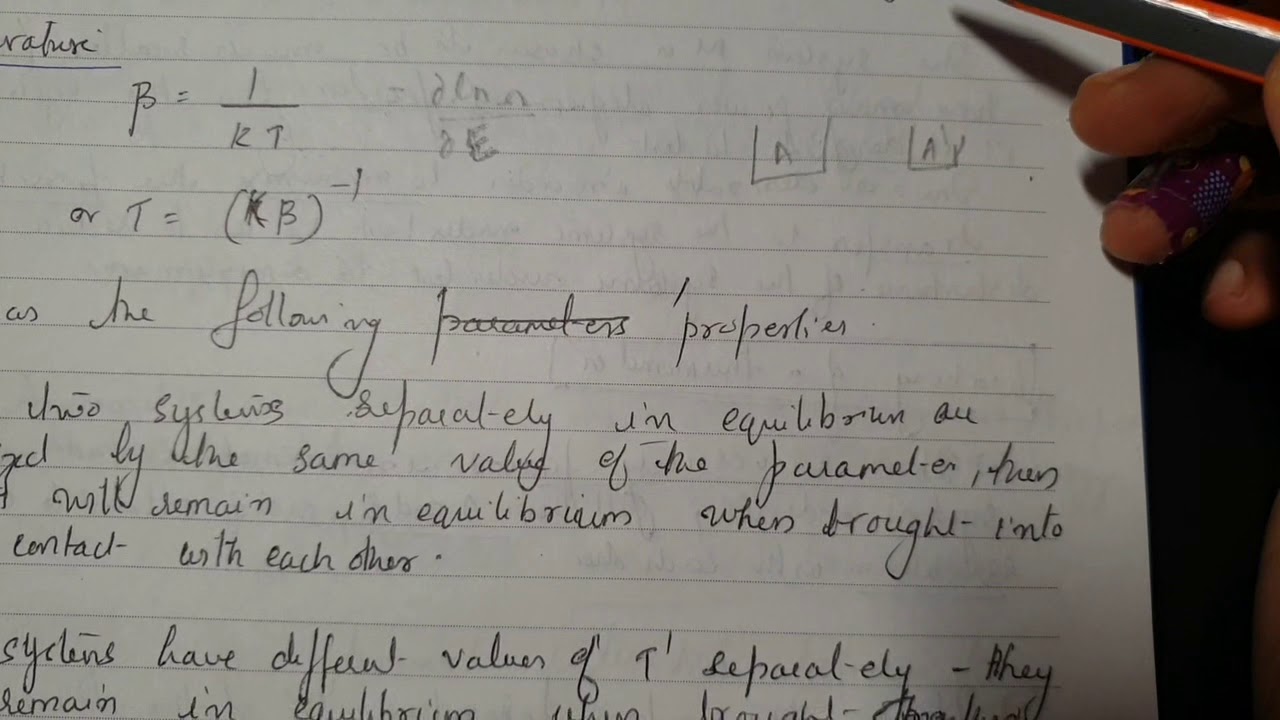 rature
β = 1 / KT = ∂ ln Ω / ∂E
A A'
or T = (Kβ)⁻¹
as the following parameters properties.
two systems separately in equilibrium are
zed by the same value of the parameter, then
will remain in equilibrium when brought into
contact with each other.
systems have different values of T' separately - they
remain in equilibrium when brought